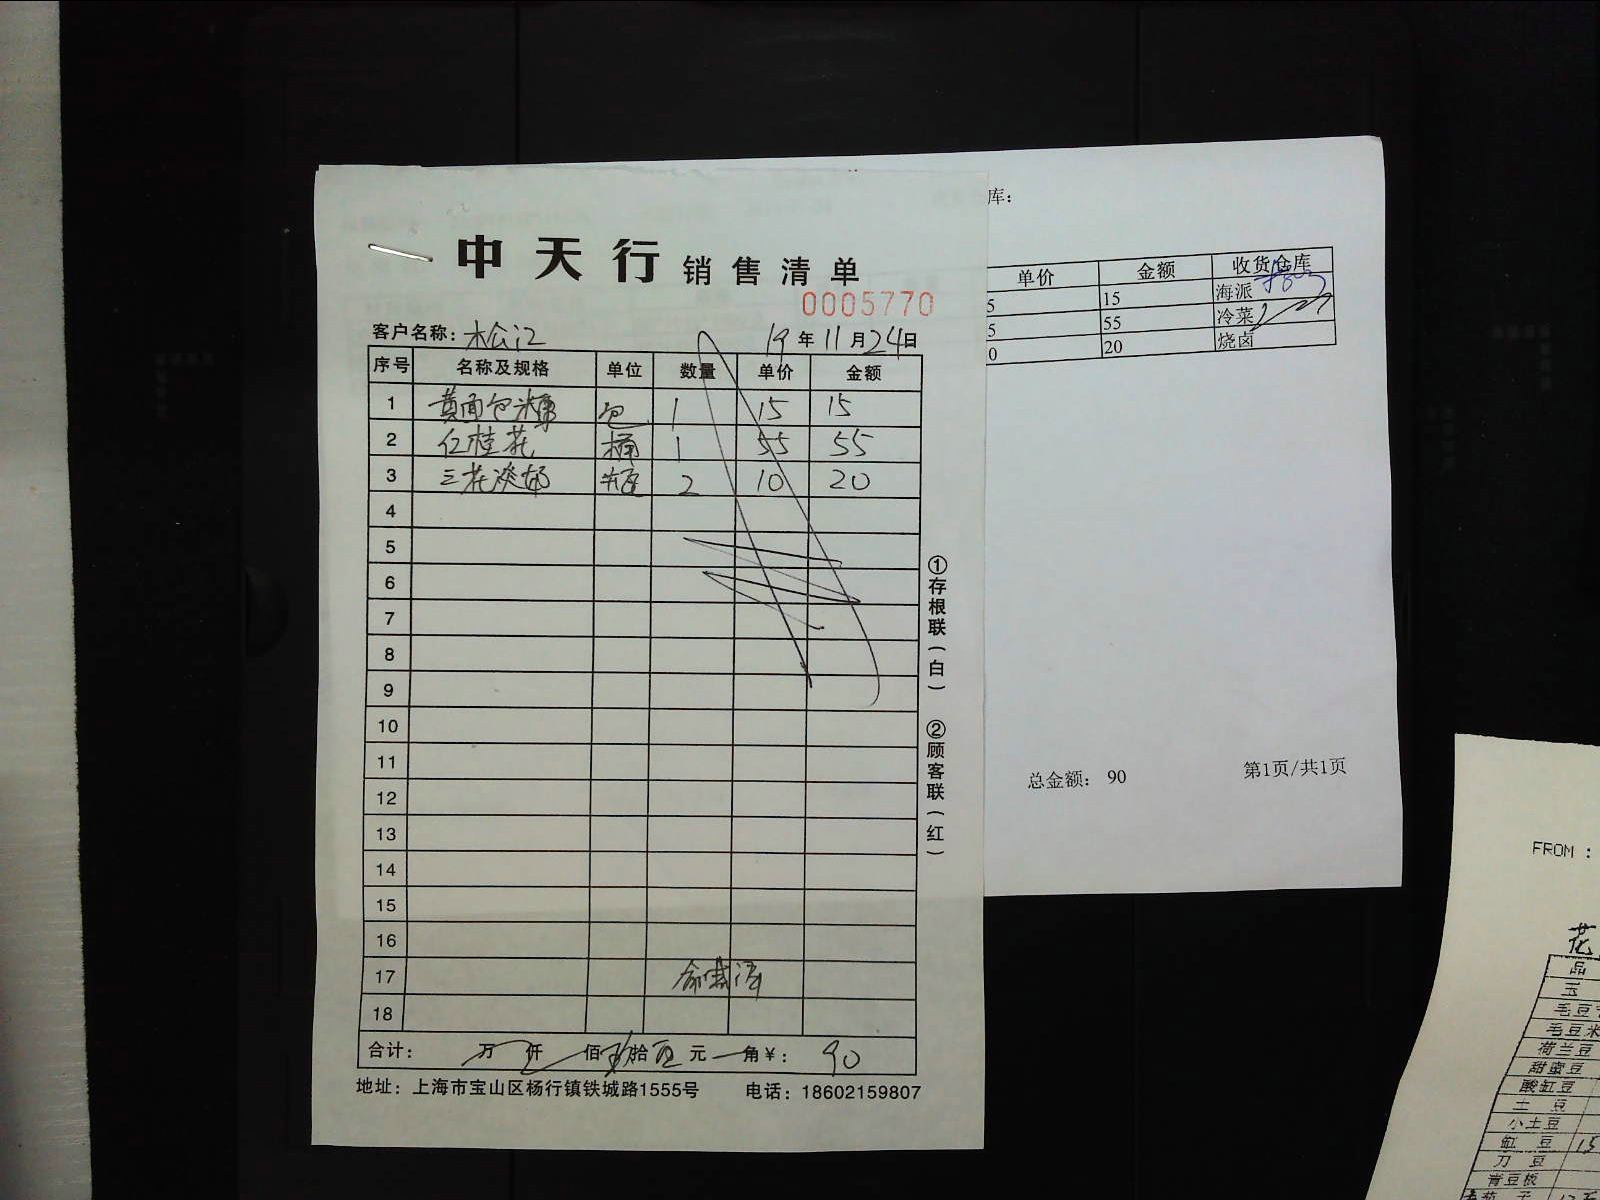 中天行 销售清单
0005770
客户名称：松江 19年11月24日
序号 名称及规格 单位 数量 单价 金额
1 黄面包糠 包 1 15 15
2 红桂花 桶 1 55 55
3 三花淡奶 罐 2 10 20
4
5
6
7
8
9
10
11
12
13
14
15
16
17
18
合计： 万 仟 佰 玖拾 元 角￥： 90
地址：上海市宝山区杨行镇铁城路1555号 电话：18602159807
①存根联（白） ②顾客联（红）
库：
单价 金额 收货仓库
5 15 海派
5 55 冷菜
0 20 烧卤
总金额： 90 第1页/共1页
FROM :
花
品
玉
毛豆
毛豆米
荷兰豆
甜蜜豆
酸缸豆
土豆
小土豆
缸豆 15
刀豆
青豆板